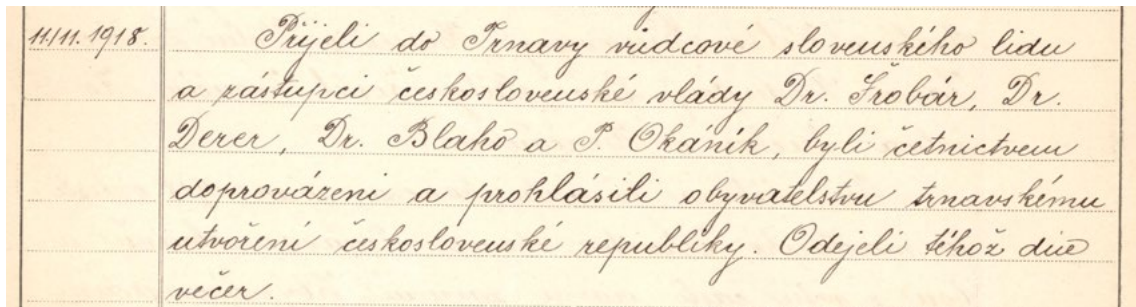 11/11. 1918. Přijeli do Trnavy vůdcové slovenského lidu
a zástupci československé vlády Dr. Šrobár, Dr.
Derer, Dr. Blaho a P. Okánik, byli četnictvem
doprovázeni a prohlásili obyvatelstvu trnavskému
utvoření československé republiky. Odejeli téhož dne
večer.